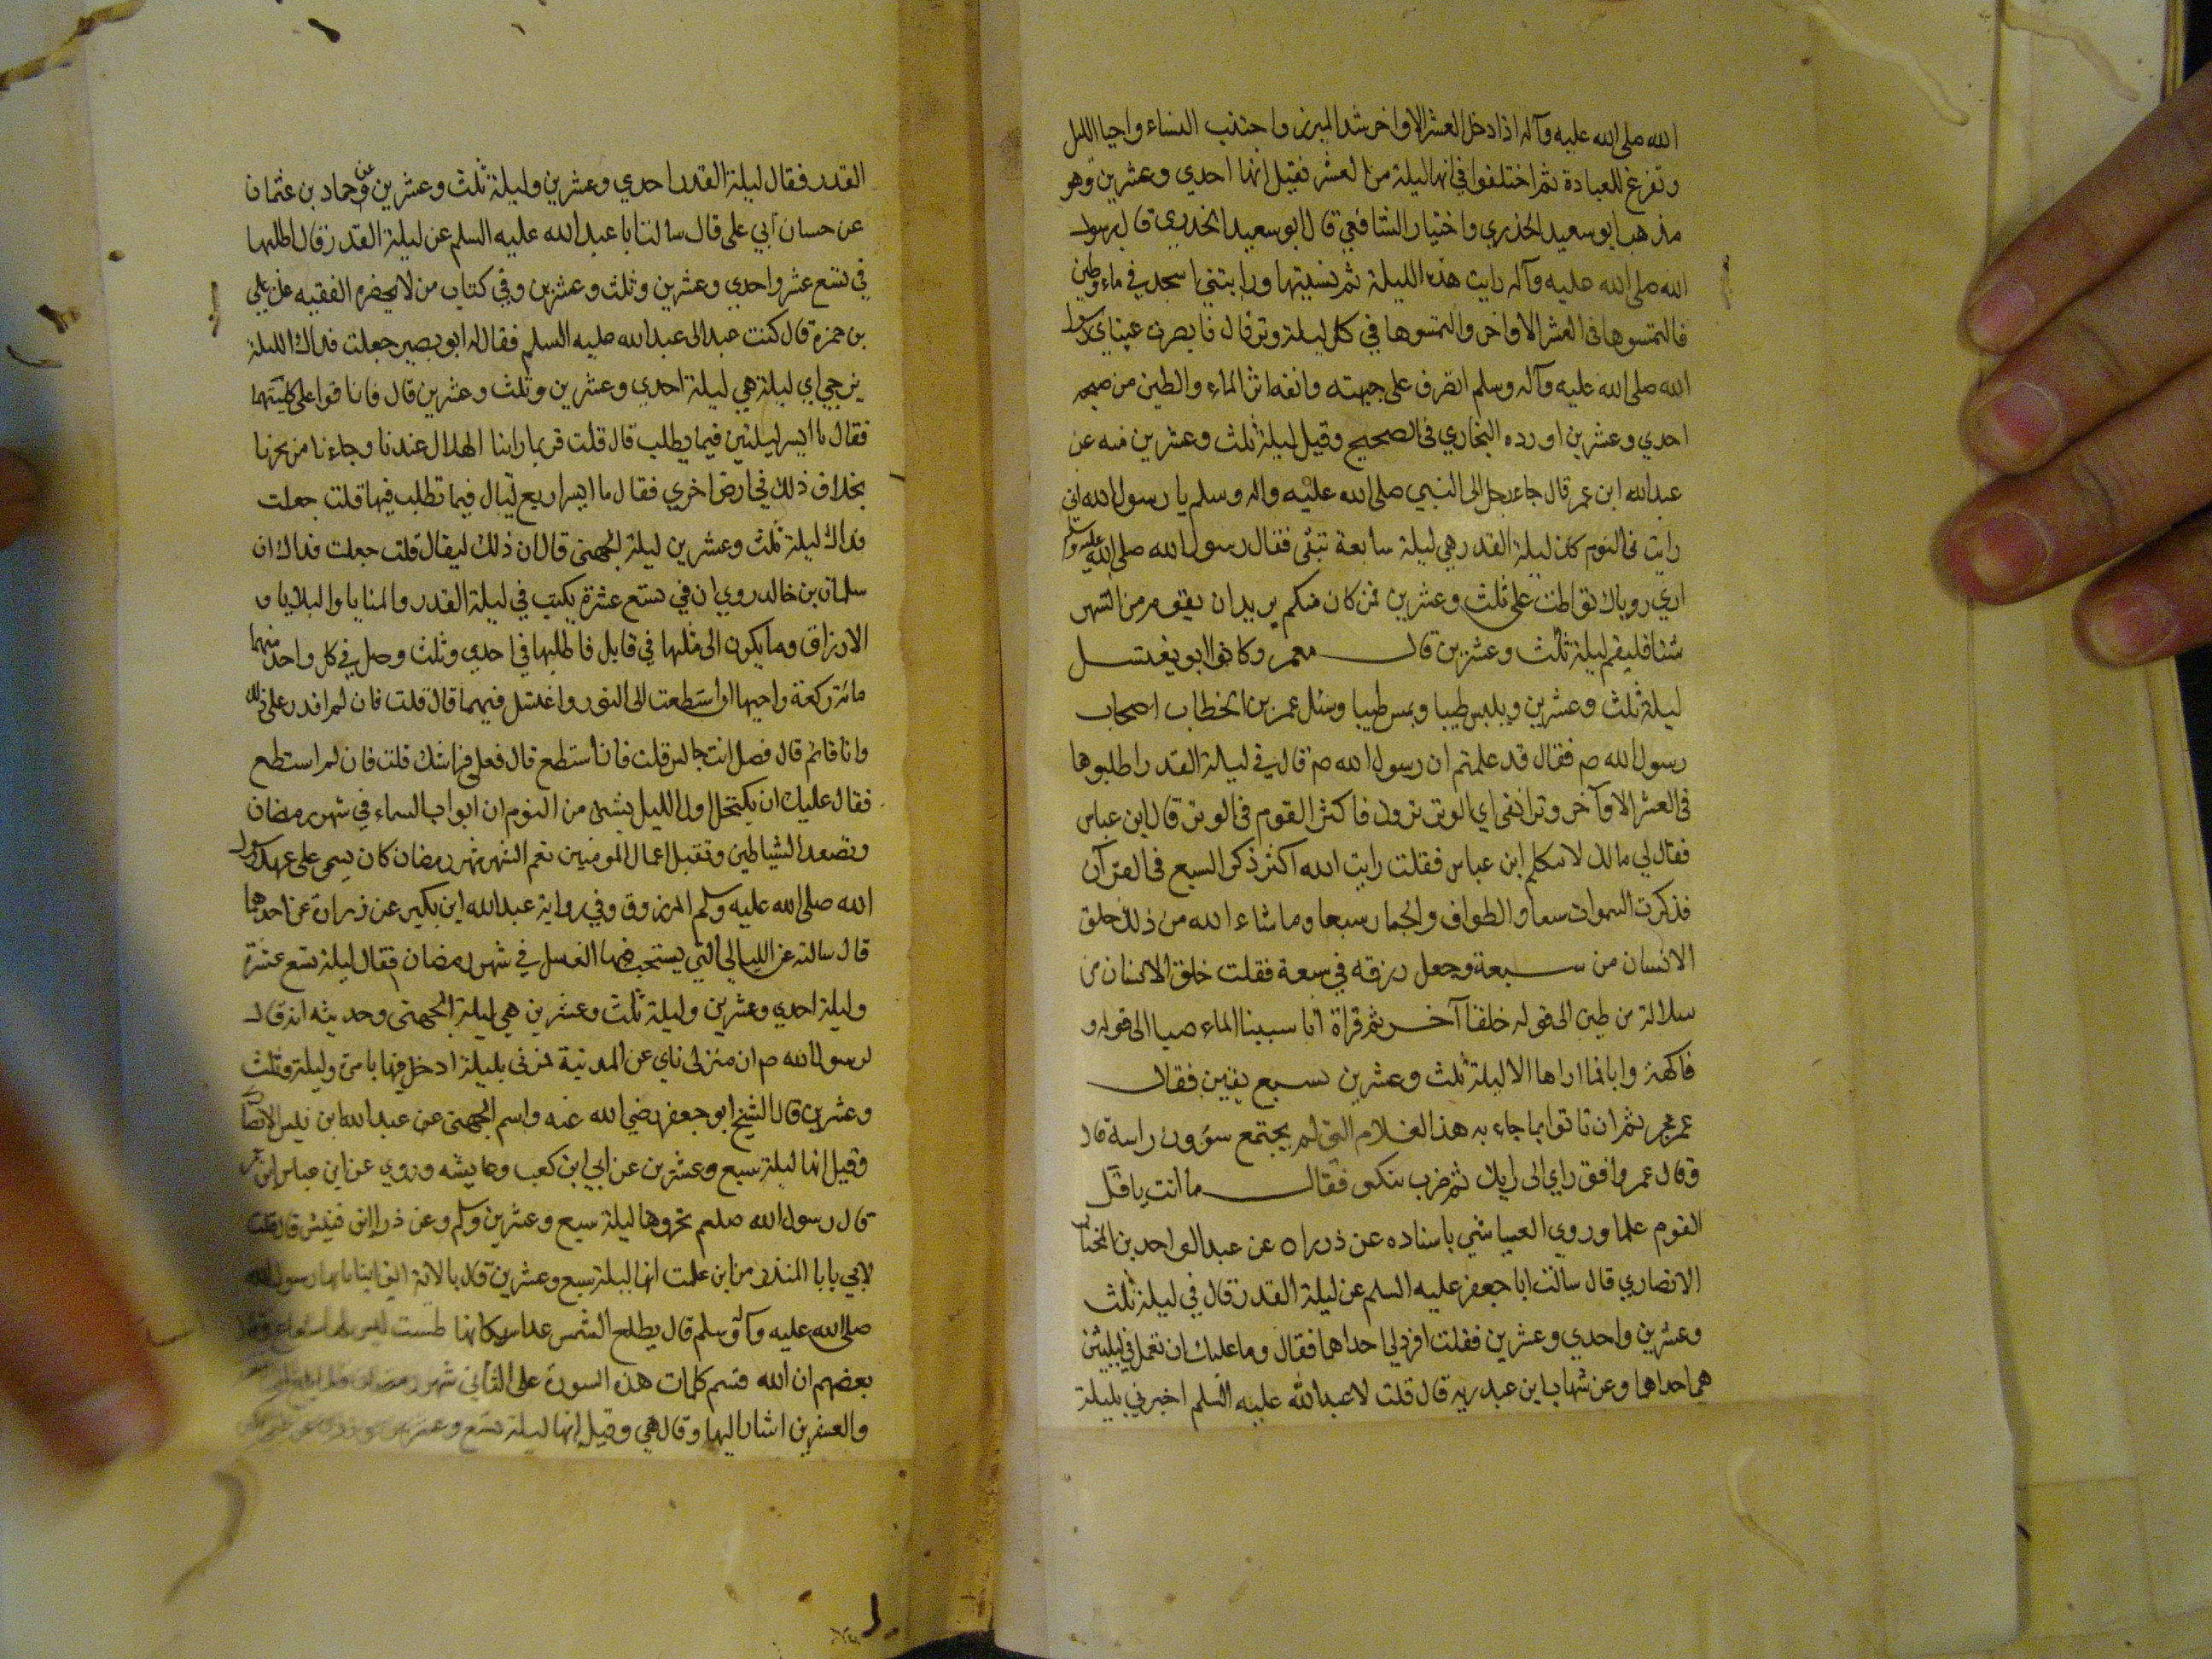 الله صلى الله عليه وآله اذا دخل العشر الاواخر شد الميزر واجتنب النساء واحيا الليل
وتفرغ للعبادة ثم اختلفوا في انها ليلة من العشر فقيل انها احدي وعشرين وهو
مذهب ابو سعيد الخذري واختيار الشافعي قال ابو سعيد الخدري قال رسول
الله صلى الله عليه وآله رايت هذه الليلة ثم نسيتها ورايتني اسجد في ماء وطين
فالتمسوها في العشر الاواخر والتمسوها في كل ليلة وتر قال فابصرت عيناي رسول
الله صلى الله عليه وآله وسلم انصرف على جبهته وانفه اثر الماء والطين من صبيحه
احدي وعشرين اورده البخاري في الصحيح وقيل ليلة ثلث وعشرين فيه عن
عبد الله ابن عمر قال جاء رجل الى النبي صلى الله عليه واله وسلم يا رسول الله اني
رايت في النوم كان ليلة القدر هي ليلة سابعة تبقى فقال رسول الله صلى الله عليه وسلم
اري روياك تواطت على ثلث وعشرين فمن كان منكم يريد ان يقوم من الشهر
شئا فليقم ليلة ثلث وعشرين قال معمر وكان ابو يغتسل
ليلة ثلث وعشرين ويلبس طيبا ويمس طيبا وسئل عمر بن الخطاب اصحاب
رسول الله ص فقال قد علمتم ان رسول الله ص قال في ليلة القدر اطلبوها
في العشر الاوآخر وترا ففي اي الوتر ترون فاكثر القوم في الوتر قال ابن عباس
فقال لي مالك لا تتكلم ابن عباس فقلت رايت الله اكثر ذكر السبع في القرآن
فذكرت السموات سبعا والطواف والجمار سبعا وما شاء الله من ذلك خلق
الانسان من سبعة وجعل رزقه في سبعة فقلت خلق الانسان من
سلالة من طين الى قوله خلقا آخر ثم قراة انا صببنا الماء صبا الى قوله و
فاكهة وابا فما اراها الا ليلة ثلث وعشرين لسبع بقين فقال
عمر عجزتم ان تاتوا بما جاء به هذا الغلام التي لم يجتمع سؤون راسه قال
وقال عمر وافق راي الى رايك ثم ضرب منكبي فقال ما انت باقل
القوم علما وروي العياشي باسناده عن زراره عن عبد الواحد بن المختار
الانصاري قال سالت ابا جعفر عليه السلم عن ليلة القدر قال في ليلة ثلث
وعشرين واحدي وعشرين فقلت افردلي احداهما فقال وما عليك ان تعمل في ليلتين
هي احداهما وعن شهاب ابن عبد ربه قال قلت لابي عبد الله عليه السلم اخبرني بليلة
القدر فقال ليلة القدر احدي وعشرين وليلة ثلث وعشرين وعن حماد بن عثمان
عن حسان ابي على قال سالت ابا عبد الله عليه السلم عن ليلة القدر قال اطلبها
في تسع عشر واحدي وعشرين وثلث وعشرين وفي كتاب من لا يحضره الفقيه عن علي
بن حمزة قال كنت عند ابى عبد الله عليه السلم فقال له ابو بصير جعلت فداك الليلة
يرجي اي ليلة هي ليلة احدي وعشرين وثلث وعشرين قال فان اقوا على كلتيهما
فقال ما ايسر ليلتين فيما يطلب قال قلت فربما راينا الهلال عندنا وجاءنا من يخبرنا
بخلاف ذلك في ارض اخري فقال ما ايسر اربع ليال فيما تطلب فيها قلت جعلت
فداك ليلة ثلث وعشرين ليلة الجهنى قال ان ذلك ليقال قلت جعلت فداك ان
سلمان بن خالد روي ان في تسع عشرة يكتب في ليلة القدر والمنايا والبلايا و
الارزاق وما يكون الى مثلها في قابل فاطلبها في احدي وثلث وصل في كل واحد منهما
مائة ركعة واحيها ان استطعت الى النور واغتسل فيهما قال قلت فان لم اقدر على ذلك
وانا قائم قال فصل انت جالس قلت فان استطع قال فعلى فراشك قلت فان لم استطع
فقال عليك ان يكتحل اول الليل بشى من النوم ان ابواب السماء في شهر رمضان
وتصعد الشياطين وتقبل اعمال المومنين نعم الشهر شهر رمضان كان يسمى على عهد رسول
الله صلى الله عليه وسلم المرزوق وفي رواية عبد الله ابن بكير عن زرارة عن احدهما
قال سالته عن الليالى التي يستحب فيها الغسل في شهر رمضان فقال ليلة تسع عشرة
وليلة احدي وعشرين وليلة ثلث وعشرين هي ليلة الجهنى وحديثه انه قال
لرسول الله ص ان منزلى ناي عن المدينة فمرني بليلة ادخل فيها بامرة وليلة وثلث
وعشرين قال الشيخ ابو جعفر رضي الله عنه واسم الجهنى عن عبد الله ابن انيس الانصاري
وقيل انها ليلة سبع وعشرين عن ابي ابن كعب وعايشه وروي عن ابن عباس ابن عمر
قال رسول الله صلعم تحروها ليلة سبع وعشرين وسلم وعن ذر ابن قال قلت
لابي يا ابا المنذر من اين علمت انها ليلة سبع وعشرين قال بالاية رسول الله
صلى الله عليه وآله وسلم قال يطلع الشمس كانها طست ليس لها شعاع
بعضهم ان الله قسم كلمات هذه السورة على الثاني شهر رمضان
والعشرين اشار اليها وقال هي وقيل انها ليلة تسع وعشرين